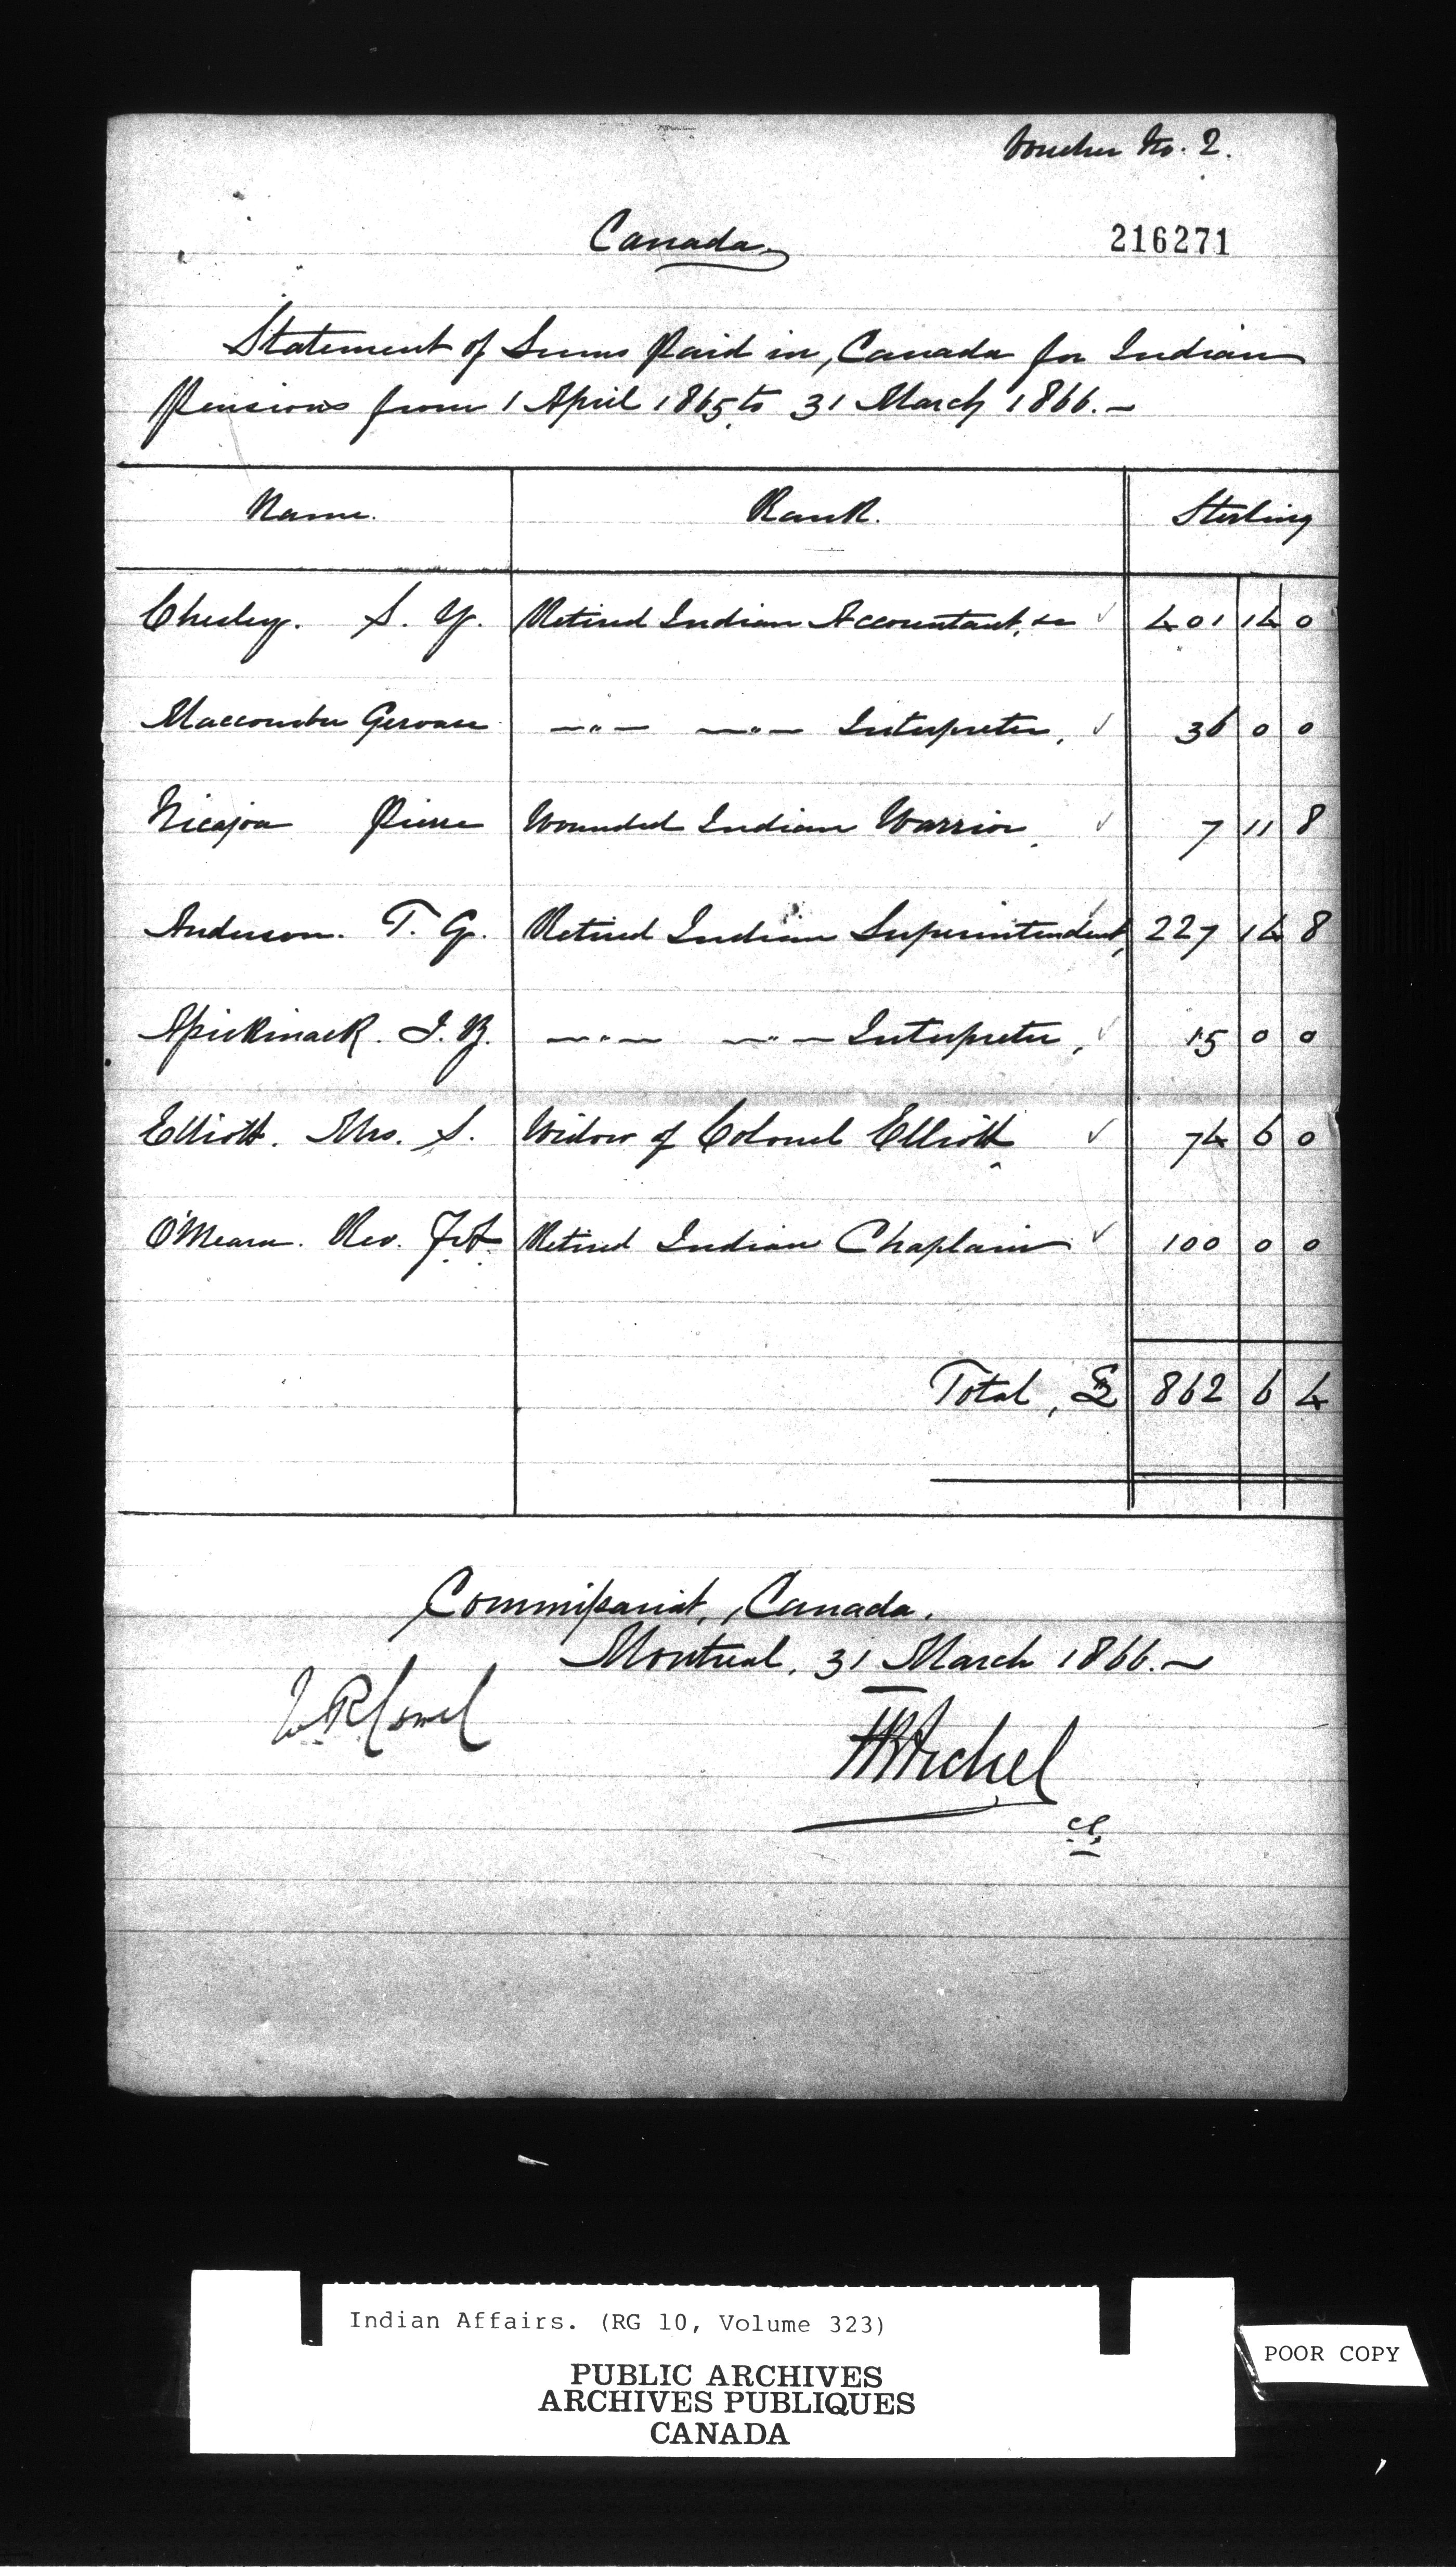 Voucher No. 2.
Canada
216271
Statement of Sums Paid in Canada for Indian
Pensions from 1 April 1865, to 31 March 1866.—
Name. Rank. Sterling
Chesley. S. Y. Retired Indian Accountant, &c ✓ 401 14 0
Maccomber Gervase —"— —"— Interpreter, ✓ 36 0 0
Nicajoa Pierre Wounded Indian Warrior, ✓ 7 11 8
Anderson. T. G. Retired Indian Superintendent, ✓ 227 14 8
J. B. —"— —"— Interpreter, ✓ 15 0 0
Elliott. Mrs. S. Widow of Colonel Elliott ✓ 74 6 0
O'Meara. Rev. F. A. Retired Indian Chaplain ✓ 100 0 0
Total, £ 862 6 4
Commissariat, Canada.
Montreal, 31 March 1866.—
Indian Affairs. (RG 10, Volume 323)
PUBLIC ARCHIVES
ARCHIVES PUBLIQUES
CANADA
POOR COPY